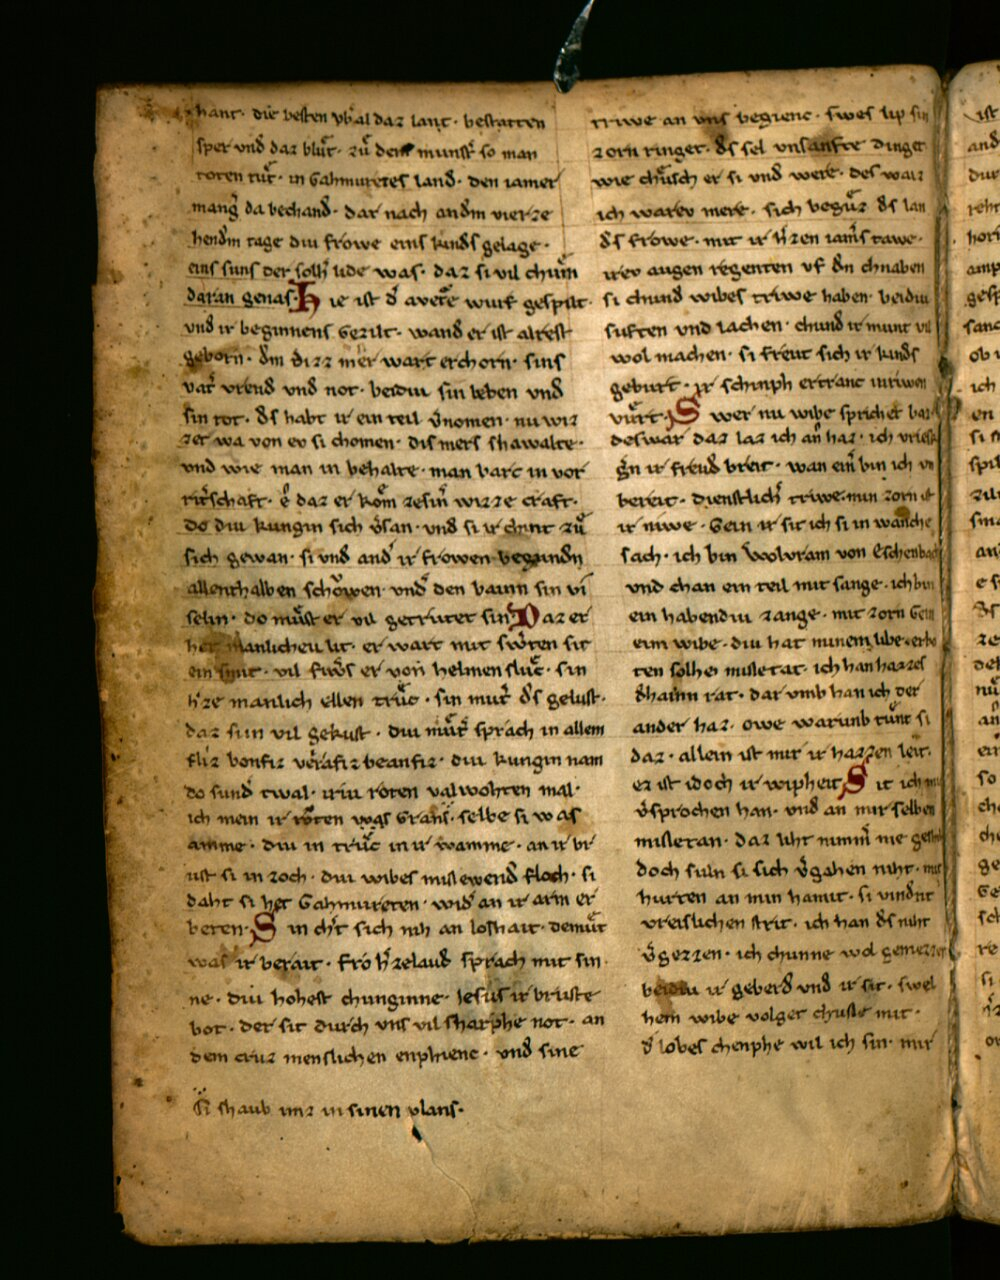 hant · die besten vb̄ al daz lant · bestatten
sper vnd daz blůt · zů dem munst̄ so man
toten tůt · in Gahmuretes land · den iamer
manḡ da bechand · dar nach andm̄ vierze
hendm̄ tage diu frowe eins kinds gelage ·
eins suns der solh̄ lide was · daz si vil chům
daran genas · Hie ist d̄ avetēre wurf gespilt ·
vnd ir beginnens Gezilt · wand er ist alrest
geborn · dm̄ dizz mer wart erchorn · sins
vat̄ vreud vnd not · beidiu sin leben vnd
sin tot · ds habt ir ein teil v̄nomen · nu wiz
zet wa von ev si chomen · dis mers shawalte ·
vnd wie man in behalte · man barc in vor
rit̄schaft · ê daz er kom zesin̄ wizze craft ·
do diu kungin sich v̄san · vnd si ir chint zů
sich gewan · si vnd and̄ ir frowen begundn̄
allenthalben schowen · vnd̄ den bainn sin vi
selin · do můst er vil getriutet sin · Daz er
het manlicheu lit · er wart mit swt̄en sit
ein smit · vil fiwr̄s er von helmen slůc · sin
h̄ze manlich ellen trůc · sin mut̄ ds gelust ·
daz si in vil gekust · diu můt̄ sprach in allem
fliz bonfiz ver̄afiz beanfiz · diu kungin nam
do sund̄ twal · iriu roten valwohten mal ·
ich mein ir rŏten w̄gs Grans̄ · selbe si was
amme · diu in trůc in ir wamme · an ir br
ust si in zoch · diu wibes missewend floch · si
daht si het Gahmureten · wid̄ an ir arm er
beten · Si n ch̄t sich niħ an loshait · demůt
was ir berait · fro h̄zelaud sprach mit sin
ne · diu hohest chunginne · Jesus ir bruste
bot · der sit durch vns vil sharphe not · an
dem cruz menslichen enphienc · vnd sine
si shaub imz in sinen vlans ·
triwe an vns begienc · swes lip sin
zorn ringet · ds sel vnsanfte dinget
wie chůsch er si vnd were · des waiz
ich warev mere · sich begůz ds lan
ds frowe · mit ir h̄zen iam̄s tawe ·
irev augen regenten vf dn̄ chnaben
si chund wibes triwe haben · beidiu
suften vnd lachen · chund ir munt vil
wol machen · si freut sich ir kinds
geburt · ir schimph ertranc inriwen
vůrt · Swer nu wibe sprichet baz
deswar daz laz ich an̄ haz · ich vriesch
gn̄ ir freud breit · wan ein̄ bin ich vn
bereit · dienstlich̄ triwe · min zorn ist
ir niwe · Gein ir sit ich si in wanche
sach · ich bin Wolvram von Eschenbach
vnd chan ein teil mit sange · ich bin
ein habendiu zange · mit zorn Gein
eim wibe · diu hat minem libe · erbo
ten solhe missetat · ich han hazzes
dhainn rat · dar vmb han ich der
ander haz · owe warunb tůnt si
daz · allein ist mir ir hazzen leit ·
ez ist idoch ir wipheit · Sit ich mi
v̄sprochen han · vnd an mir selben
missetan · daz liht nimm̄ me gesch
doch suln si sich v̄gahen niht · mit
hurten an min hamit · si vindnt
vreislichen strit · ich han ds niht
v̄gezzen · ich chunne wol gemezzen
beidiu ir geberd vnd ir sit · swel
hem wibe volget chusse mit ·
d̄ lobes chenphe wil ich sin · mir